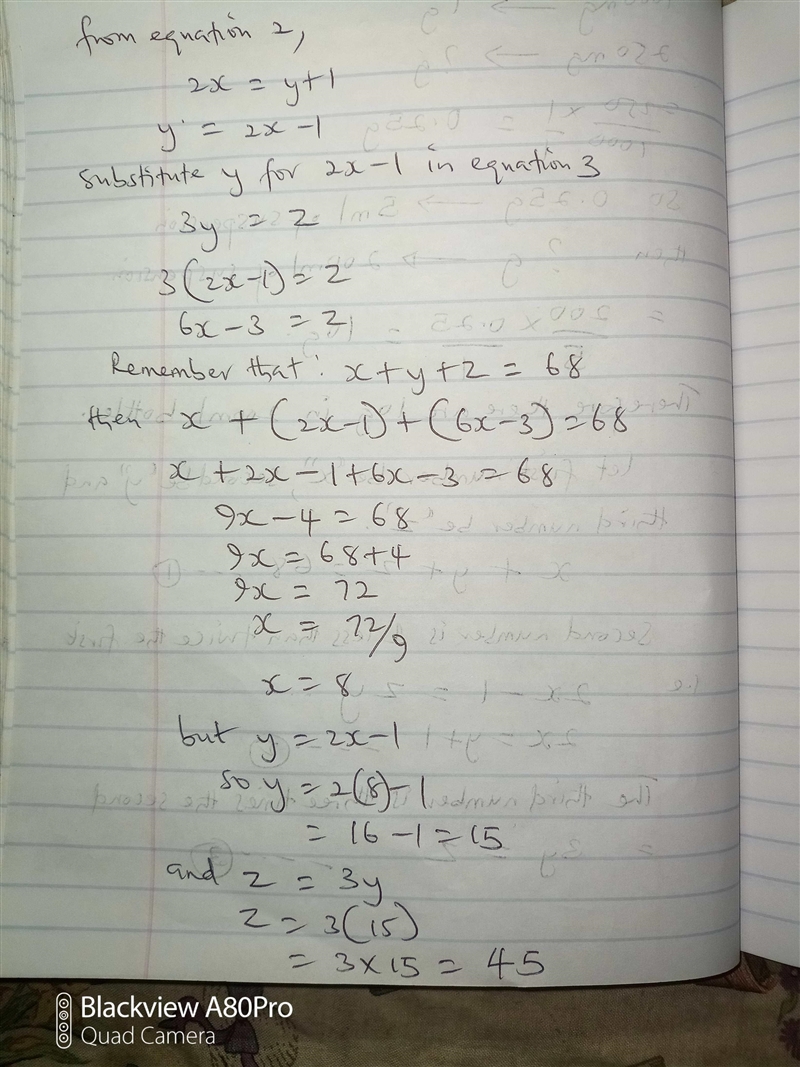 from equation 2,
2x = y+1
y = 2x-1
Substitute y for 2x-1 in equation 3
3y = z
3(2x-1) = z
6x-3 = z
Remember that: x+y+z = 68
then x + (2x-1) + (6x-3) = 68
x + 2x - 1 + 6x - 3 = 68
9x - 4 = 68
9x = 68+4
9x = 72
x = 72/9
x = 8
but y = 2x-1
so y = 2(8)-1
= 16-1 = 15
and z = 3y
z = 3(15)
= 3×15 = 45
Blackview A80Pro
Quad Camera